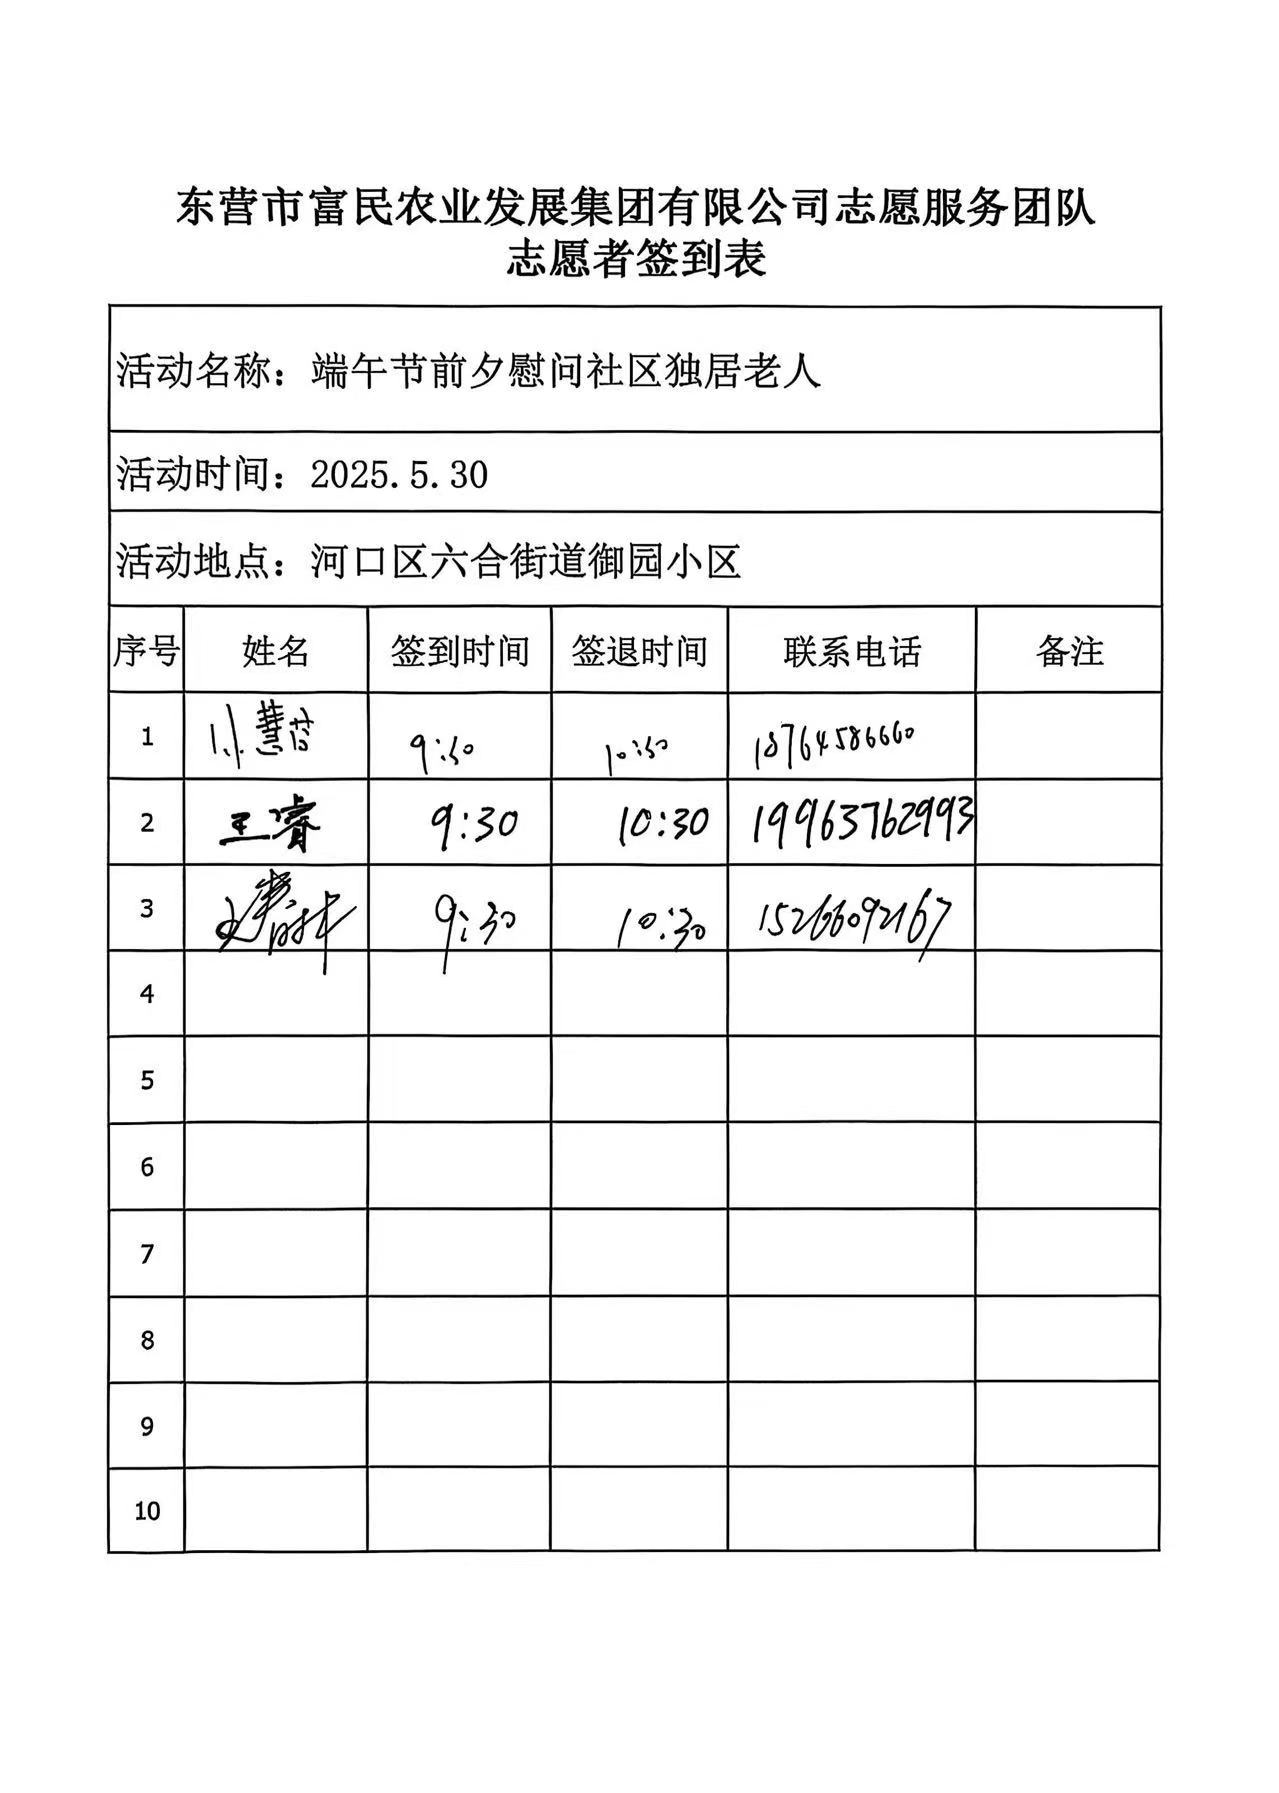 东营市富民农业发展集团有限公司志愿服务团队
志愿者签到表
活动名称：端午节前夕慰问社区独居老人
活动时间：2025.5.30
活动地点：河口区六合街道御园小区
序号 姓名 签到时间 签退时间 联系电话 备注
1 9:30 10:30 18764586660
2 王睿 9:30 10:30 19963762993
3 9:30 10:30 15266092167
4
5
6
7
8
9
10